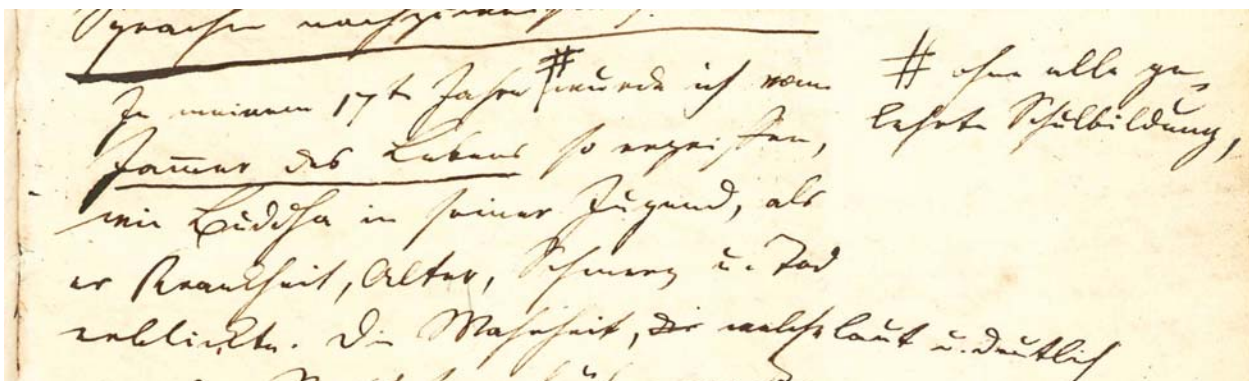 Sprachen
In meinem 17ten Jahre # wurde ich vom
Jammer des Lebens so ergriffen,
wie Buddha in seiner Jugend, als
er Krankheit, Alter, Schmerz u. Tod
erblickte. Die Wahrheit, die welche laut u. deutlich
# ohne alle ge-
lehrte Schulbildung,